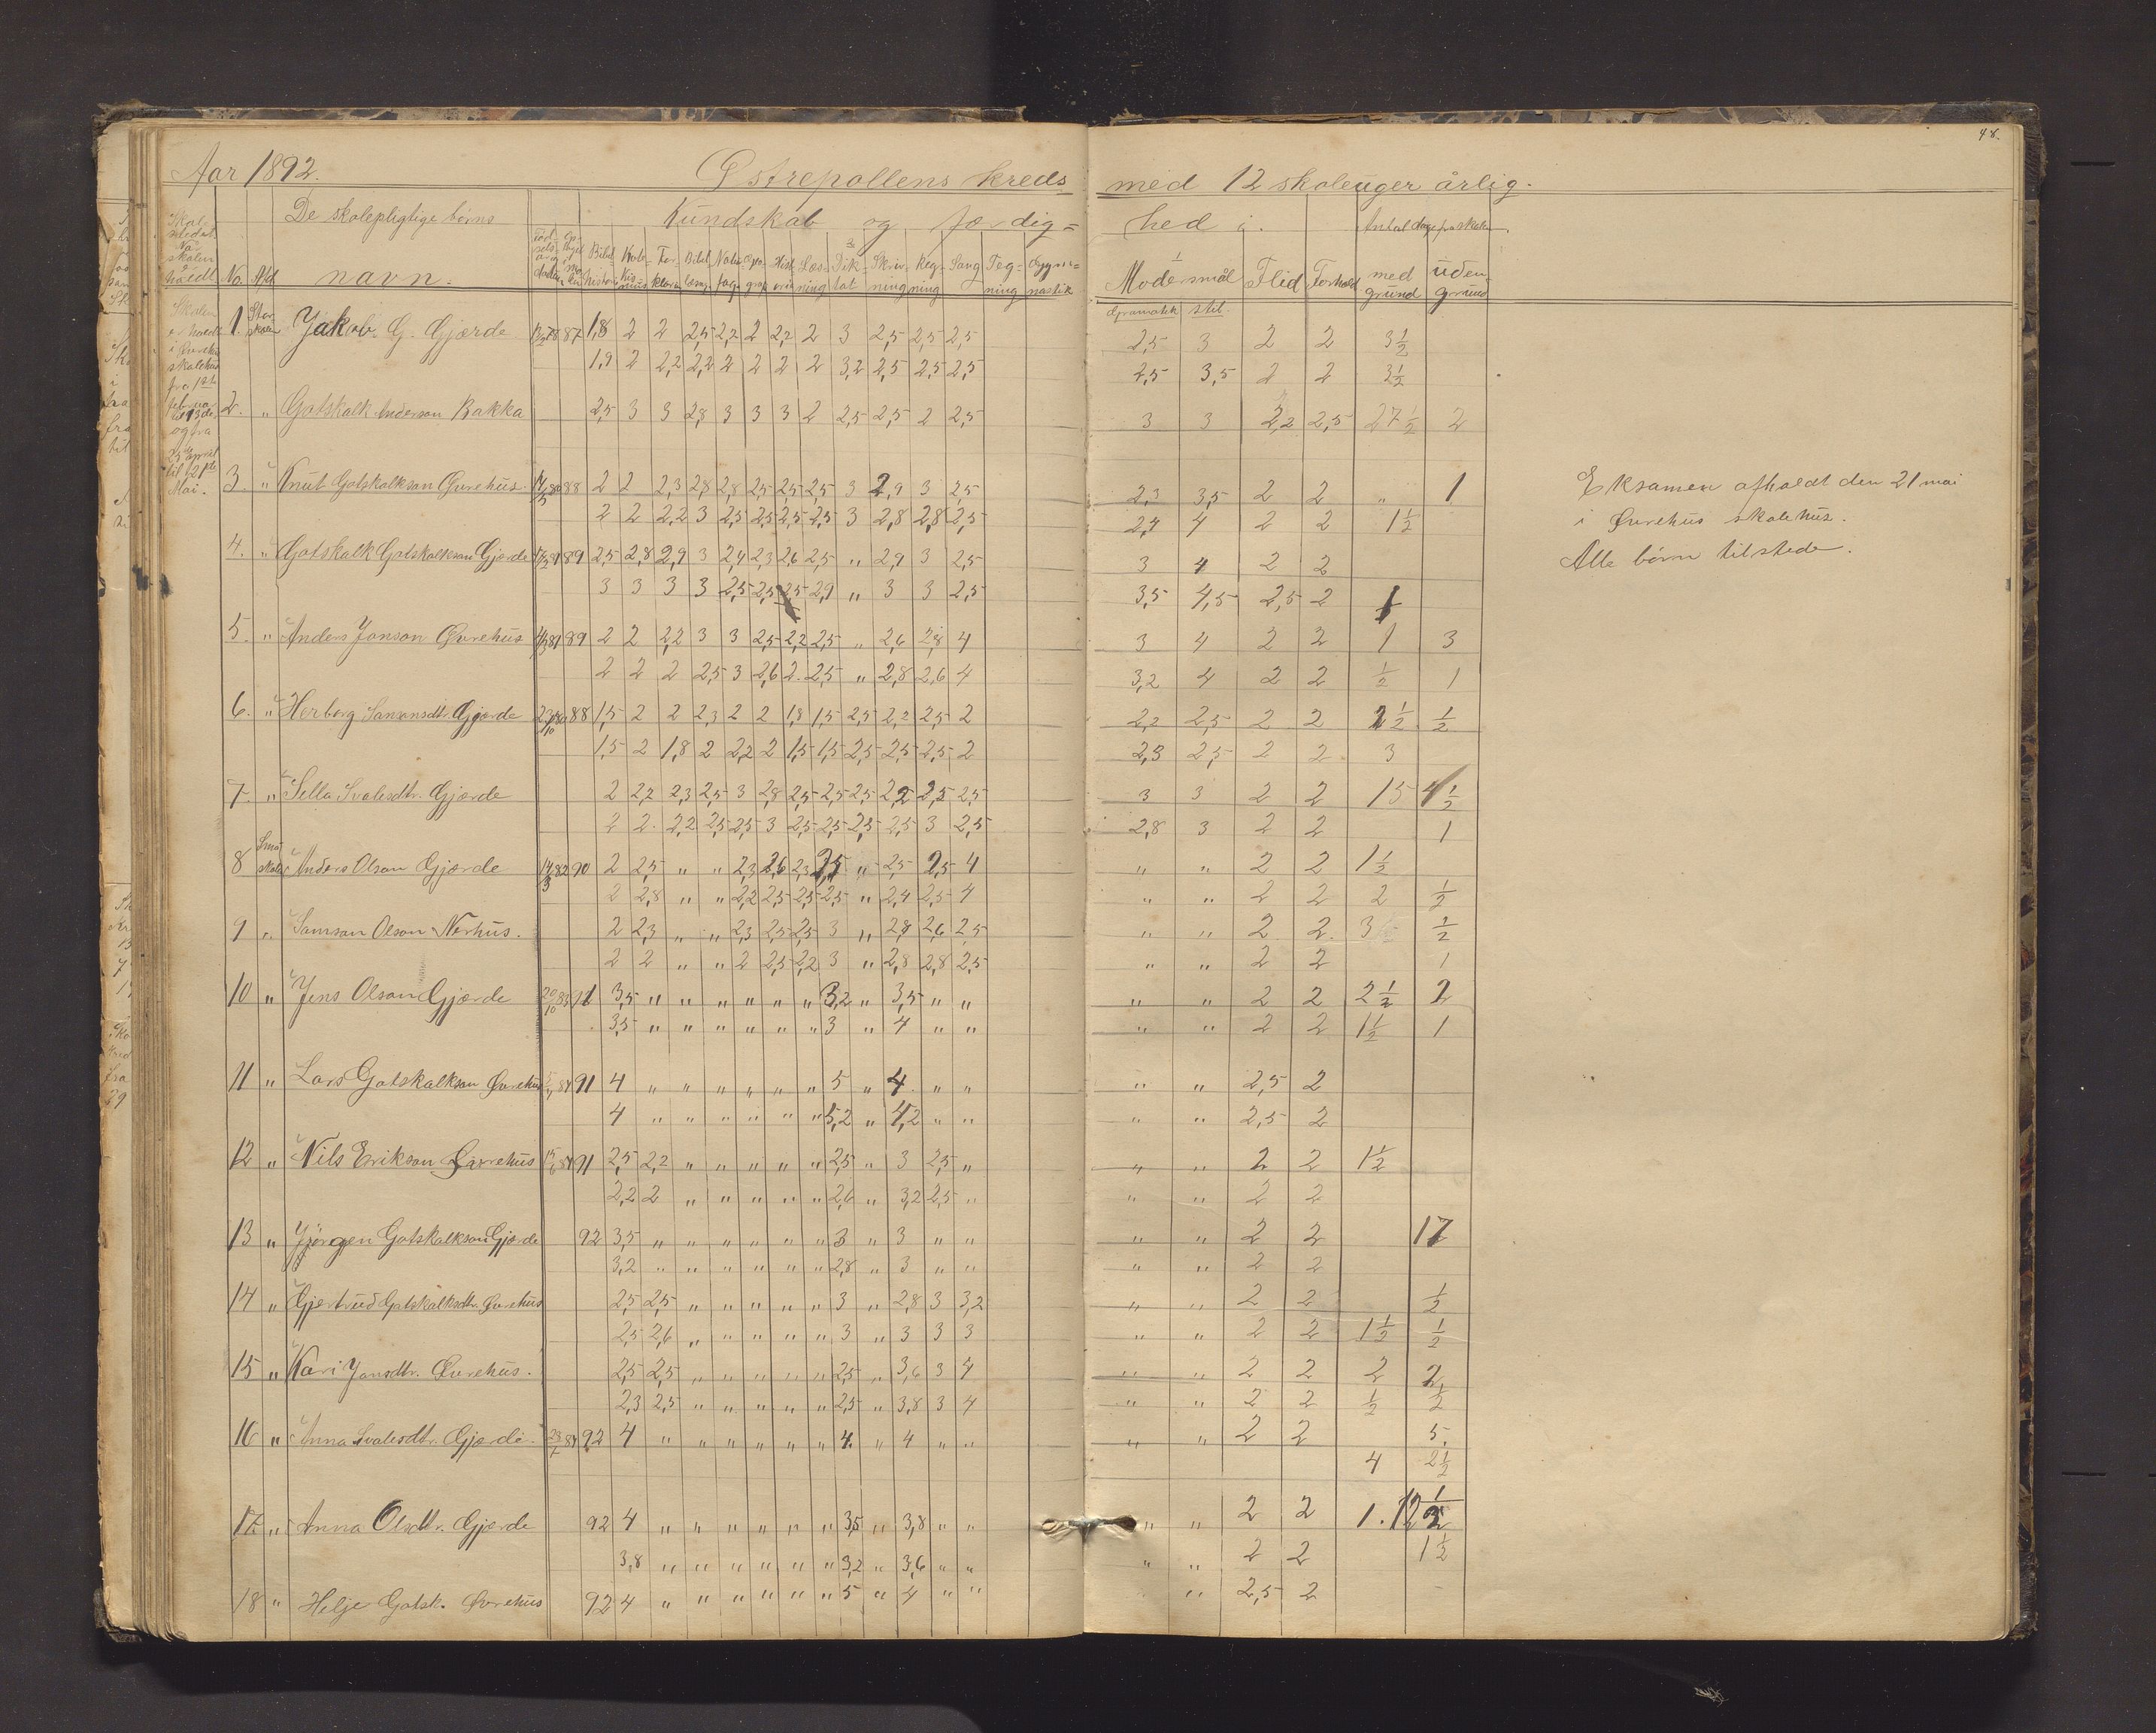 48.
Aar 1892. Østrepollens kreds med 12 skoleuger årlig.
De skolepligtige børns Kundskab og færdighed i. Antal dage fra skolen
No. Afd. navn. Modersmål Flid Forhold med grund uden grund
Gramatik stil.
Skolen er holdt i Øvrehus skolehus fra 1ste februar til 13de og fra 25de april til 12te Mai.
1. Storskolen Jakob. G. Gjærde 87 1,8 2 2 2,5 2,2 2 2,2 2 3 2,5 2,5 2,5 2,5 3 2 2 3½
1,9 2 2,2 2,2 2 2 2 2 3,2 2,5 2,5 2,5 2,5 3,5 2 2 3½
2. " Gotskalk Anderson Bakka 2,5 3 3 2,8 3 3 3 2 2,5 2,5 2 2,5 3 3 2,2 2,5 27½ 2
3. " Knut Gotskalkson Øvrehus. 88 2 2 2,3 2,8 2,8 2,5 2,5 2,5 3 2,9 3 2,5 2,3 3,5 2 2 " 1
2 2 2,2 3 2,5 2,5 2,5 2,5 3 2,8 2,8 2,5 2,4 4 2 2 1½
4. " Gotskalk Gotskalkson Gjærde 89 2,5 2,8 2,9 3 2,4 2,3 2,6 2,5 " 2,9 3 2,5 3 4 2 2
3 3 3 3 2,5 2,5 2,5 2,9 " 3 3 2,5 3,5 4,5 2,5 2 1
5. " Anders Janson Øvrehus 89 2 2 2,2 3 3 2,5 2,2 2,5 " 2,6 2,8 4 3 4 2 2 1 3
2 2 2 2,5 3 2,6 2 2,5 " 2,8 2,6 4 3,2 4 2 2 ½ 1
6. " Herborg Sansonsdtr. Gjærde 88 1,5 2 2 2,3 2 2 1,8 1,5 2,5 2,2 2,5 2 2,2 2,5 2 2 1½ ½
1,5 2 1,8 2 2,2 2 1,5 1,5 2,5 2,5 2,5 2 2,3 2,5 2 2 3
7. " Sella Svalesdtr. Gjærde 2 2,2 2,3 2,5 3 2,8 2,5 2,5 2,5 2,2 2,5 2,5 3 3 2 2 15 4½
2 2 2,2 2,5 2,5 3 2,5 2,5 2,5 2,5 3 2,5 2,8 3 2 2 1
8 Småskolen Anders Olson Gjærde 14/3 82 90 2 2,5 " " 2,3 2,6 2,3 2,5 " 2,5 2,5 4 " " 2 2 1½
2 2,8 " " 2,2 2,5 2,5 2,5 " 2,4 2,5 4 " " 2 2 2 ½
9 " Samson Olson Nerhus. 2 2,3 " " 2,3 2,5 2,5 3 " 2,8 2,6 2,5 " " 2 2. 3 ½
2 2 " " 2 2,5 2,2 3 " 2,8 2,8 2,5 " " 2 2 1
10 " Jens Olson Gjærde 20/10 83 91 3,5 " " " " " " 3,2 " 3,5 " " " " 2 2 2½ 2
3,5 " " " " " " 3 " 4 " " " " 2 2 1½ 1
11 " Lars Gotskalkson Øvrehus 84 91 4 " " " " " " 5 " 4 " " " " 2,5 2
4 " " " " " " 5,2 " 4,2 " " " " 2,5 2
12 " Nils Erikson Øvrehus 84 91 2,5 2,2 " " " " " 2,5 " 3 2,5 " " " 2 2 1½
2,2 2 " " " " " 2,6 " 3,2 2,5 " " " 2 2
13 " Jørgen Gotskalkson Gjærde 92 3,5 " " " " " " 3 " 3 " " " " 2 2 17
3,2 " " " " " " 2,8 " 3 " " " " 2 2
14 " Gjertrud Gotskalksdtr. Øvrehus 2,5 2,5 " " " " " 3 " 2,8 3 3,2 " " 2 2 ½
2,5 2,6 " " " " " 3 " 3 3 3 " " 2 2 1½ ½
15 " Kari Jansdtr. Øvrehus. 2,5 2,5 " " " " " 2,5 " 3,6 3 4 " " 2 2 2 2
2,3 2,5 " " " " " 2,5 " 3,8 3 4 " " 2 2 ½ ½
16 " Anna Svalesdtr. Gjærde. 84 92 4 " " " " " " 4. " 4 " " " " 2 2 5.
4 2½
17 " Anna Olsdtr. Gjærde 92 4 " " " " " " 3,5 " 3,8 " " " " 2 2 1. 12½
3,8 " " " " " " 3,2 " 3,6 " " " " 2 2 1½
18 " Helje Gotsk. Øvrehus 92 4 " " " " " " 5 " 4 " " " 2,5 2
Eksamen afholdt den 21 mai
i Øvrehus skolehus.
Alle børn tilstede.